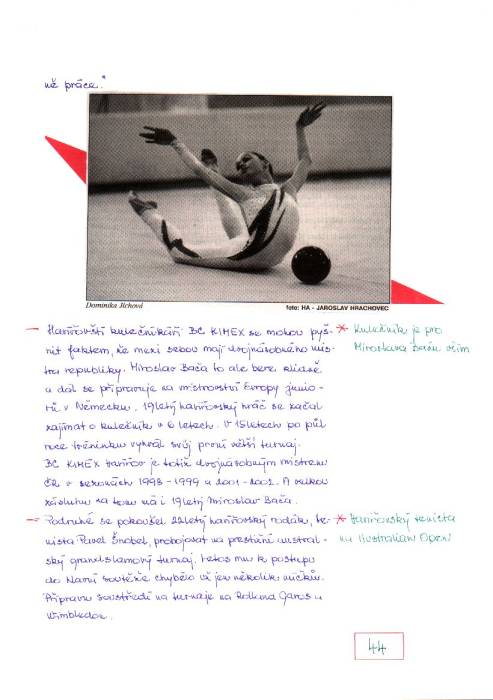 ně práce."
Dominika Jíchová
foto: HA - JAROSLAV HRACHOVEC
- Havířovští kulečníkáři BC KIMEX se mohou pyš-
nit faktem, že mezi sebou mají dvojnásobného mis-
tra republiky. Miroslav Bača to ale bere klidně
a dál se připravuje na mistrovství Evropy junio-
rů v Německu. 19letý havířovský hráč se začal
zajímat o kulečník v 6 letech. V 15 letech po půl
roce tréninku vyhrál svůj první větší turnaj.
BC KIMEX Havířov je totiž dvojnásobným mistrem
ČR v sezonách 1998-1999 a 2001-2002. A velkou
zásluhu na tom má i 19letý Miroslav Bača.
* Kulečník je pro
Miroslava Baču vším
- Podruhé se pokoušel 22letý havířovský rodák, te-
nista Pavel Šnobel, probojovat na prestižní austral-
ský grandslamový turnaj. Letos mu k postupu
do hlavní soutěže chybělo už jen několik míčků.
Přípravu soustředí na turnaje na Rolland Garos a
Wimbledon.
* Havířovský tenista
na Australian Open
44